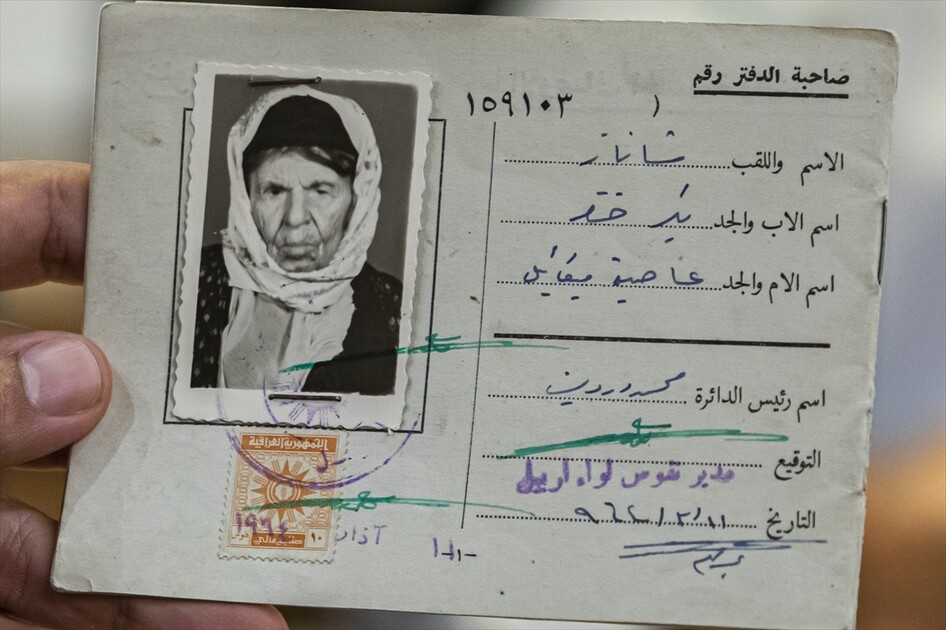 صاحبة الدفتر رقم
١٥٩١٠٣ ١
الاسم واللقب شاناز
اسم الاب والجد
اسم الام والجد عاصية ميقائيل
اسم رئيس الدائرة
التوقيع
مدير نفوس لواء اربيل
التاريخ
الجمهورية العراقية
١٩٦٤ آذار
١٠ فلوس